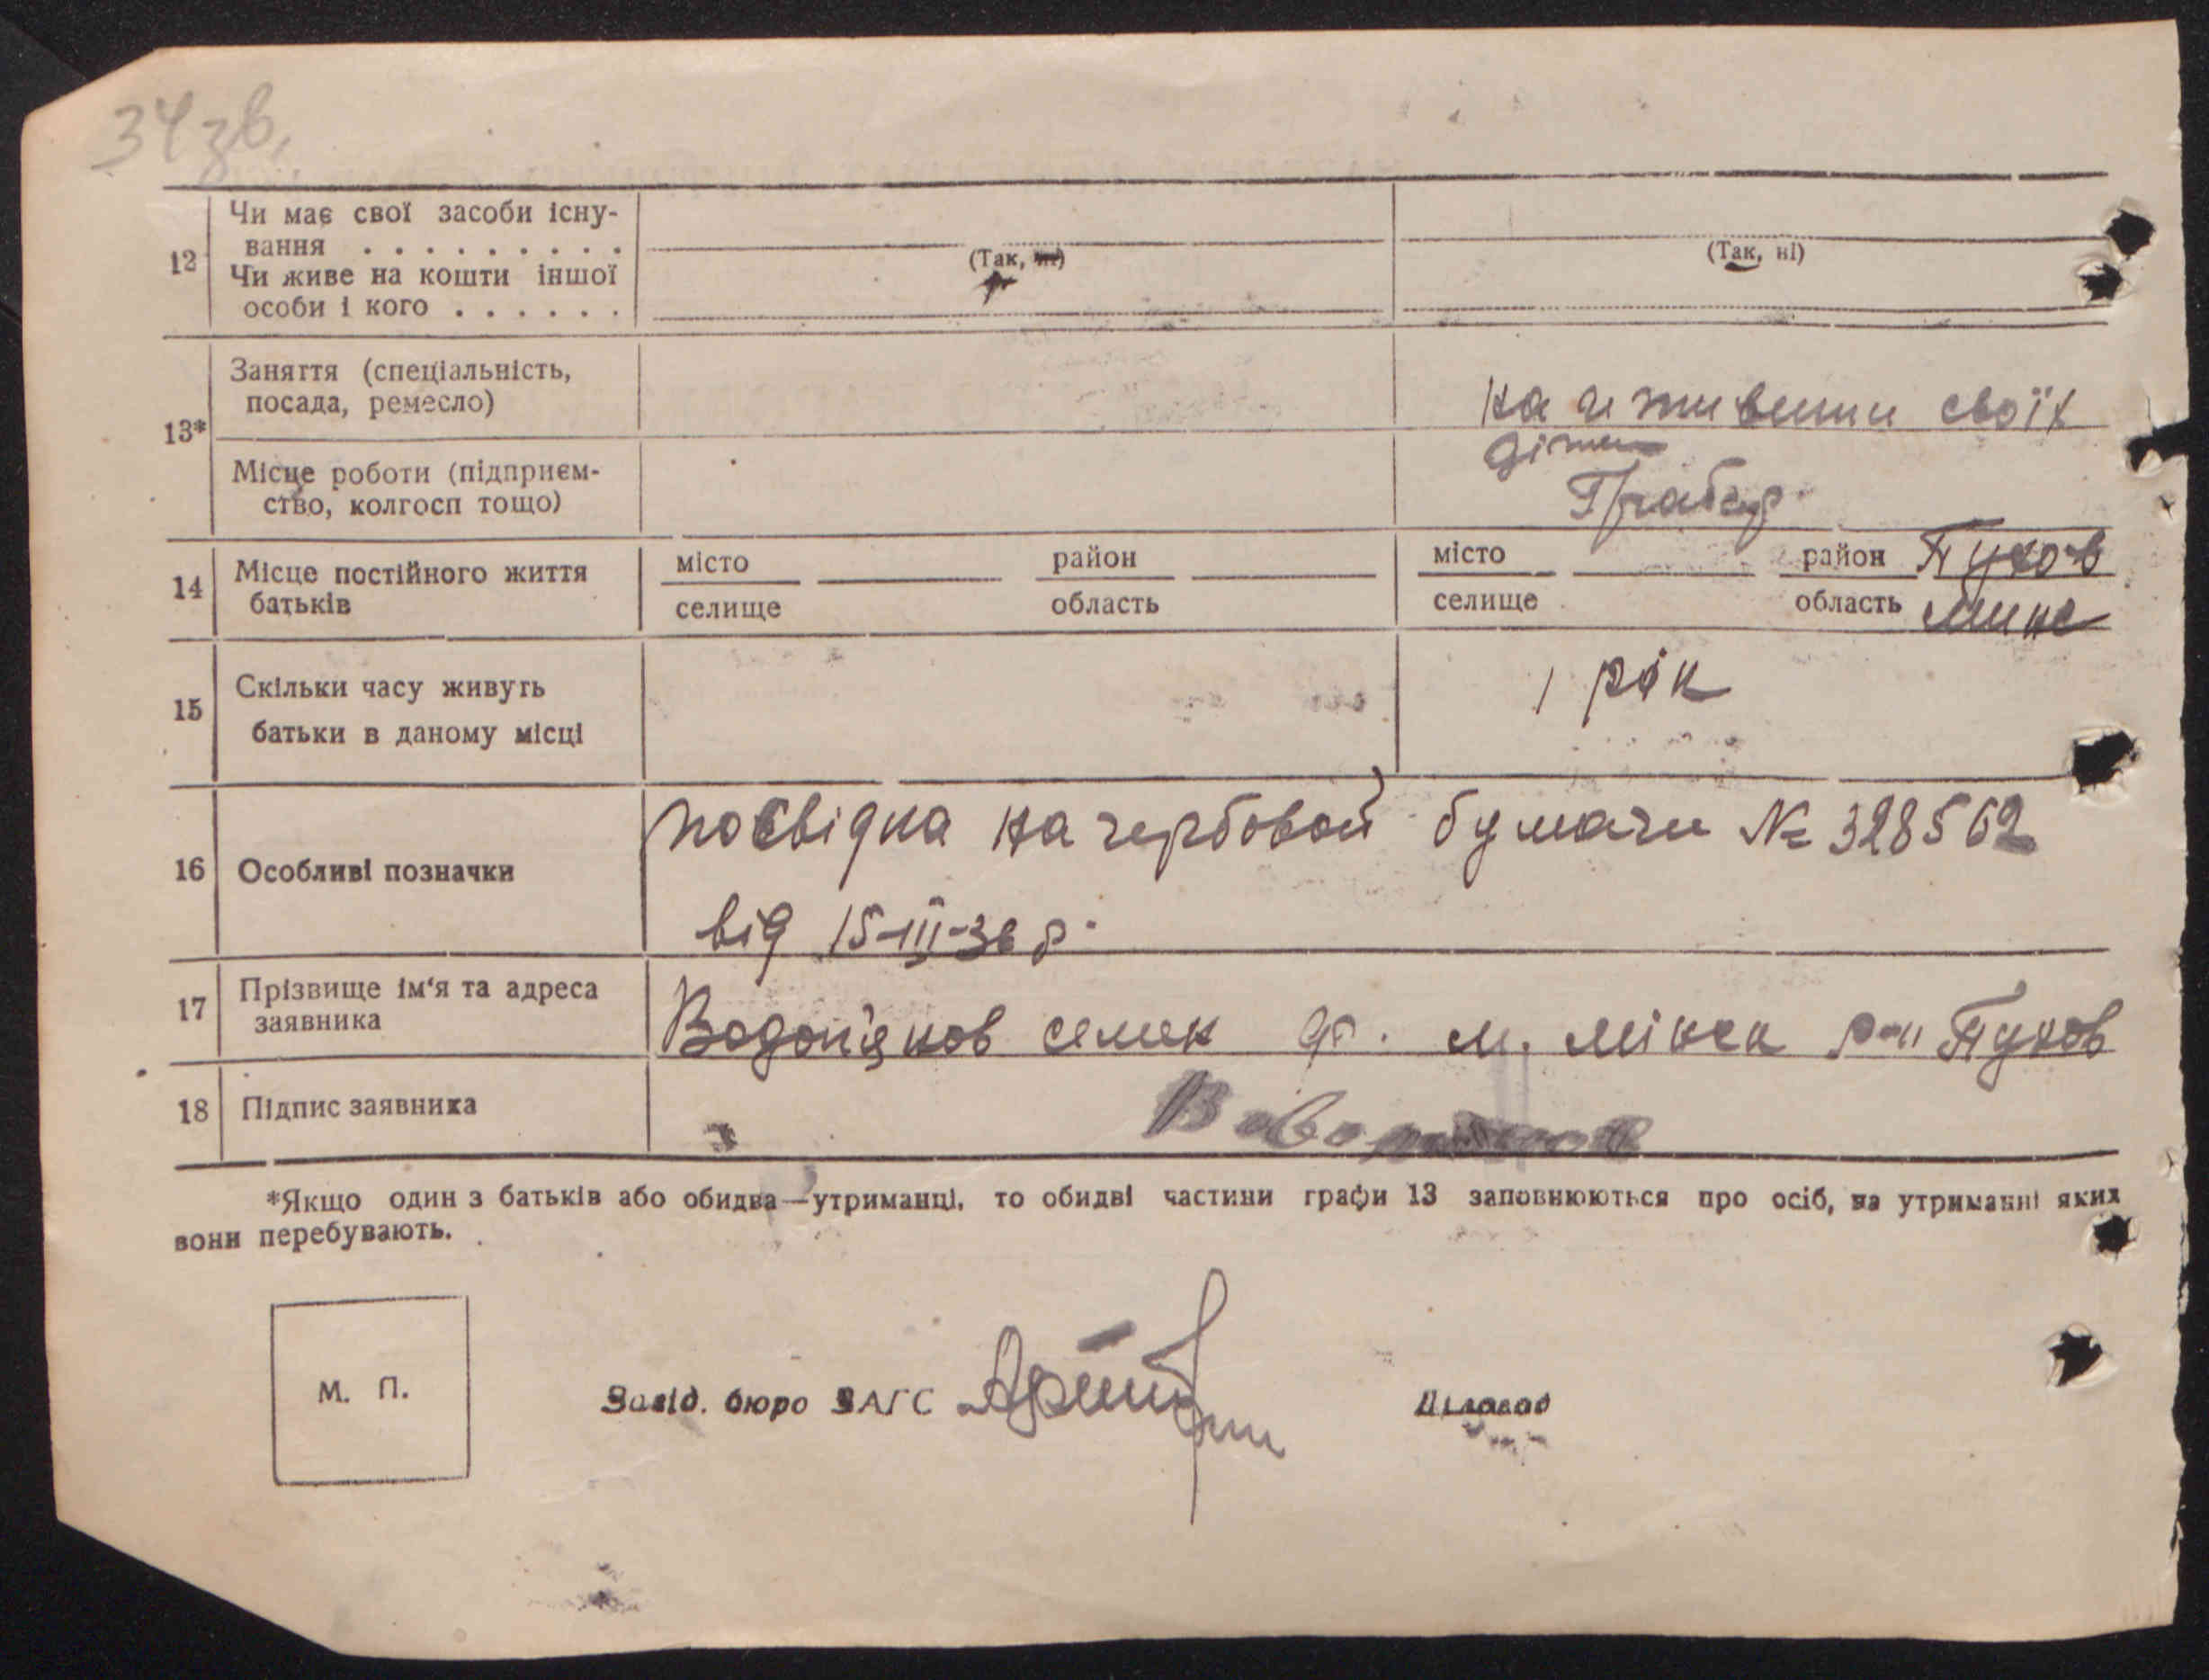 34 зв.
12
Чи має свої засоби існу-
вання . . . . . . . . .
Чи живе на кошти іншої
особи і кого . . . . . .
(Так, ні)
(Так, ні)
13*
Заняття (спеціальність,
посада, ремесло)
на
своїх
Місце роботи (підприєм-
ство, колгосп тощо)
14
Місце постійного життя
батьків
місто район
селище область
місто район Пухов
селище область Минс
15
Скільки часу живуть
батьки в даному місці
1 рік
16
Особливі позначки
посвідка на гербовой бумаги № 328562
від 15-III-36 р.
17
Прізвище ім'я та адреса
заявника
Водоп'янов семен м. мінск р-н Пухов
18
Підпис заявника
*Якщо один з батьків або обидва—утриманці, то обидві частини графи 13 заповнюються про осіб, на утриманні яких
вони перебувають.
М. П.
Завід. бюро ЗАГС
Діловод